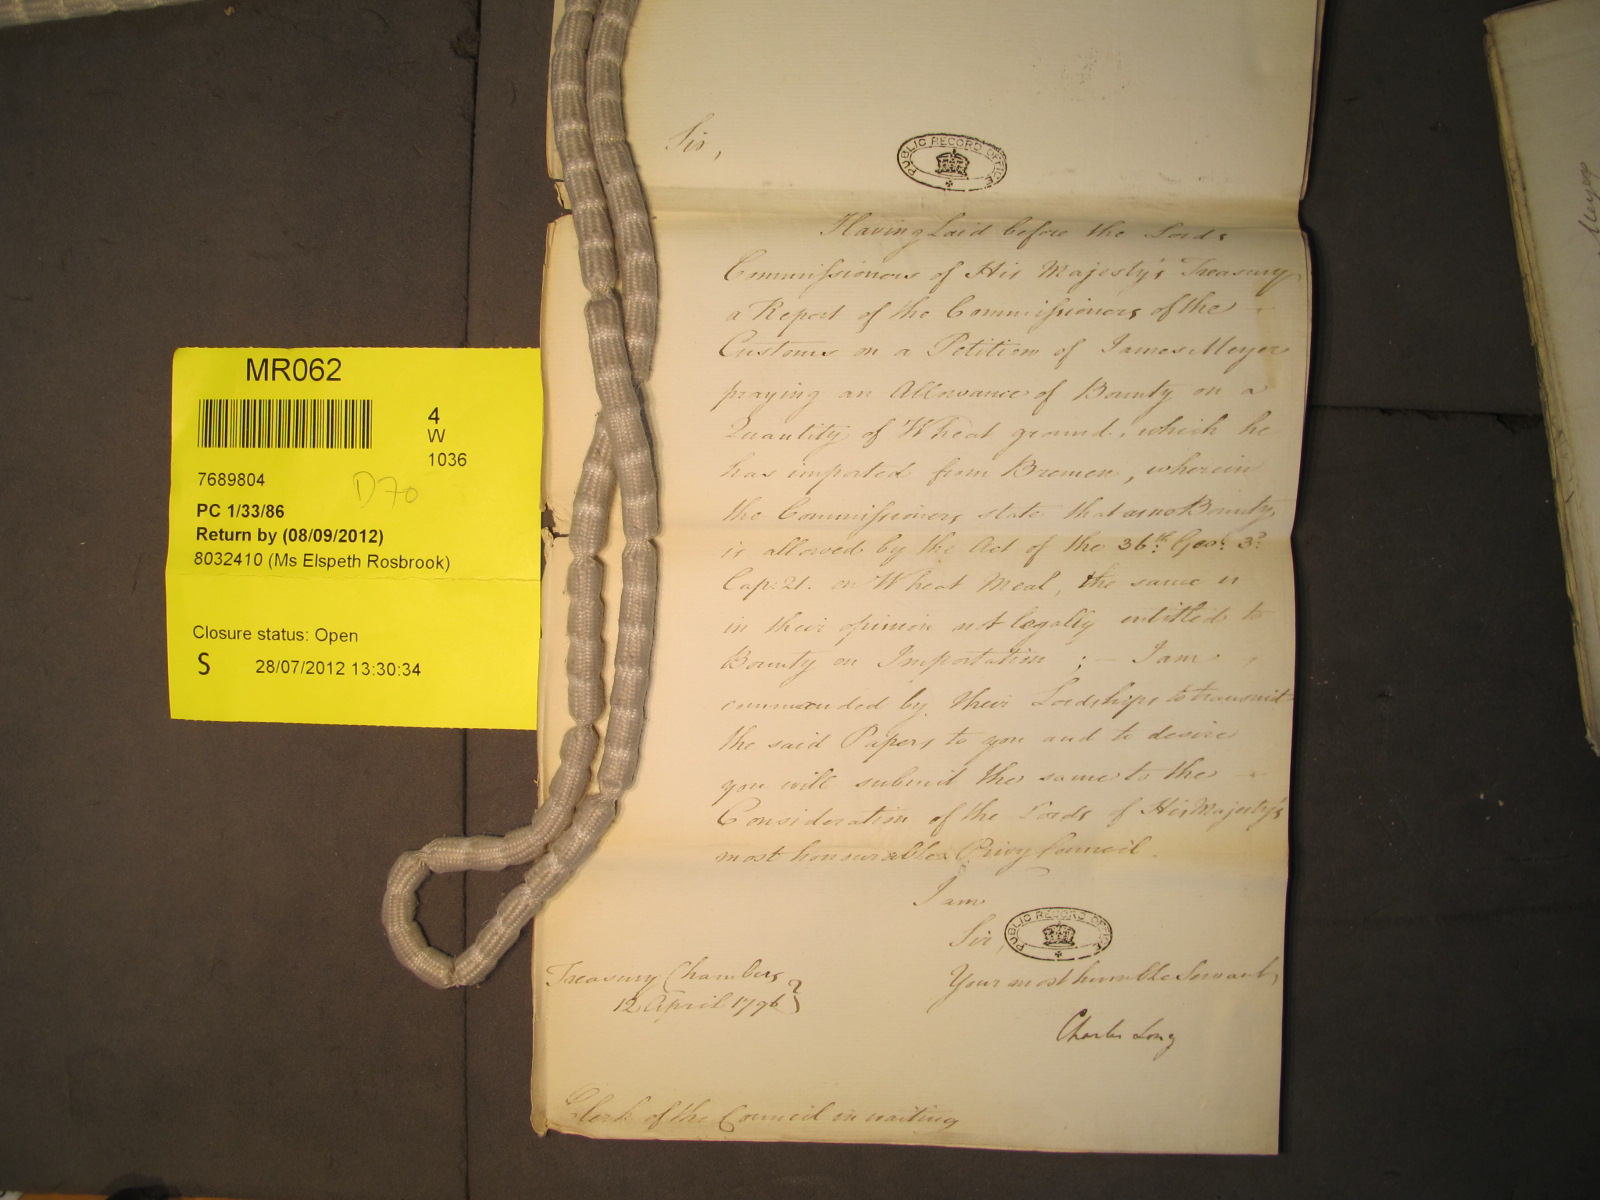 MR062
4
W
1036
7689804
D70
PC 1/33/86
Return by (08/09/2012)
8032410 (Ms Elspeth Rosbrook)
Closure status: Open
S 28/07/2012 13:30:34
Sir,
PUBLIC RECORD OFFICE
Having Laid before the Lords
Commissioners of His Majesty's Treasury
a Report of the Commissioners of the
Customs on a Petition of James Meyer
praying an Allowance of Bounty on a
Quantity of Wheat ground, which he
has imported from Bremen, wherein
the Commissioners state that as no Bounty
is allowed by the Act of the 36th. Geo: 3d.
Cap: 21. on Wheat Meal, the same is
in their opinion not legally entitled to
Bounty on Importation ; – I am
commanded by their Lordships to transmit
the said Papers to you and to desire
you will submit the same to the
Consideration of the Lords of His Majesty's
most honourable Privy Council.
I am
Sir,
PUBLIC RECORD OFFICE
Your most humble Servant
Charles Long
Treasury Chambers
12 April 1796
Clerk of the Council in waiting
Meyer